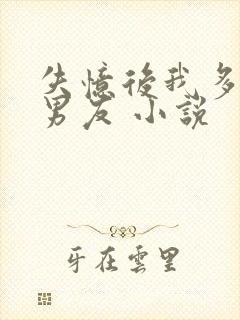 失憶後我多
男友 小說
牙在雲里